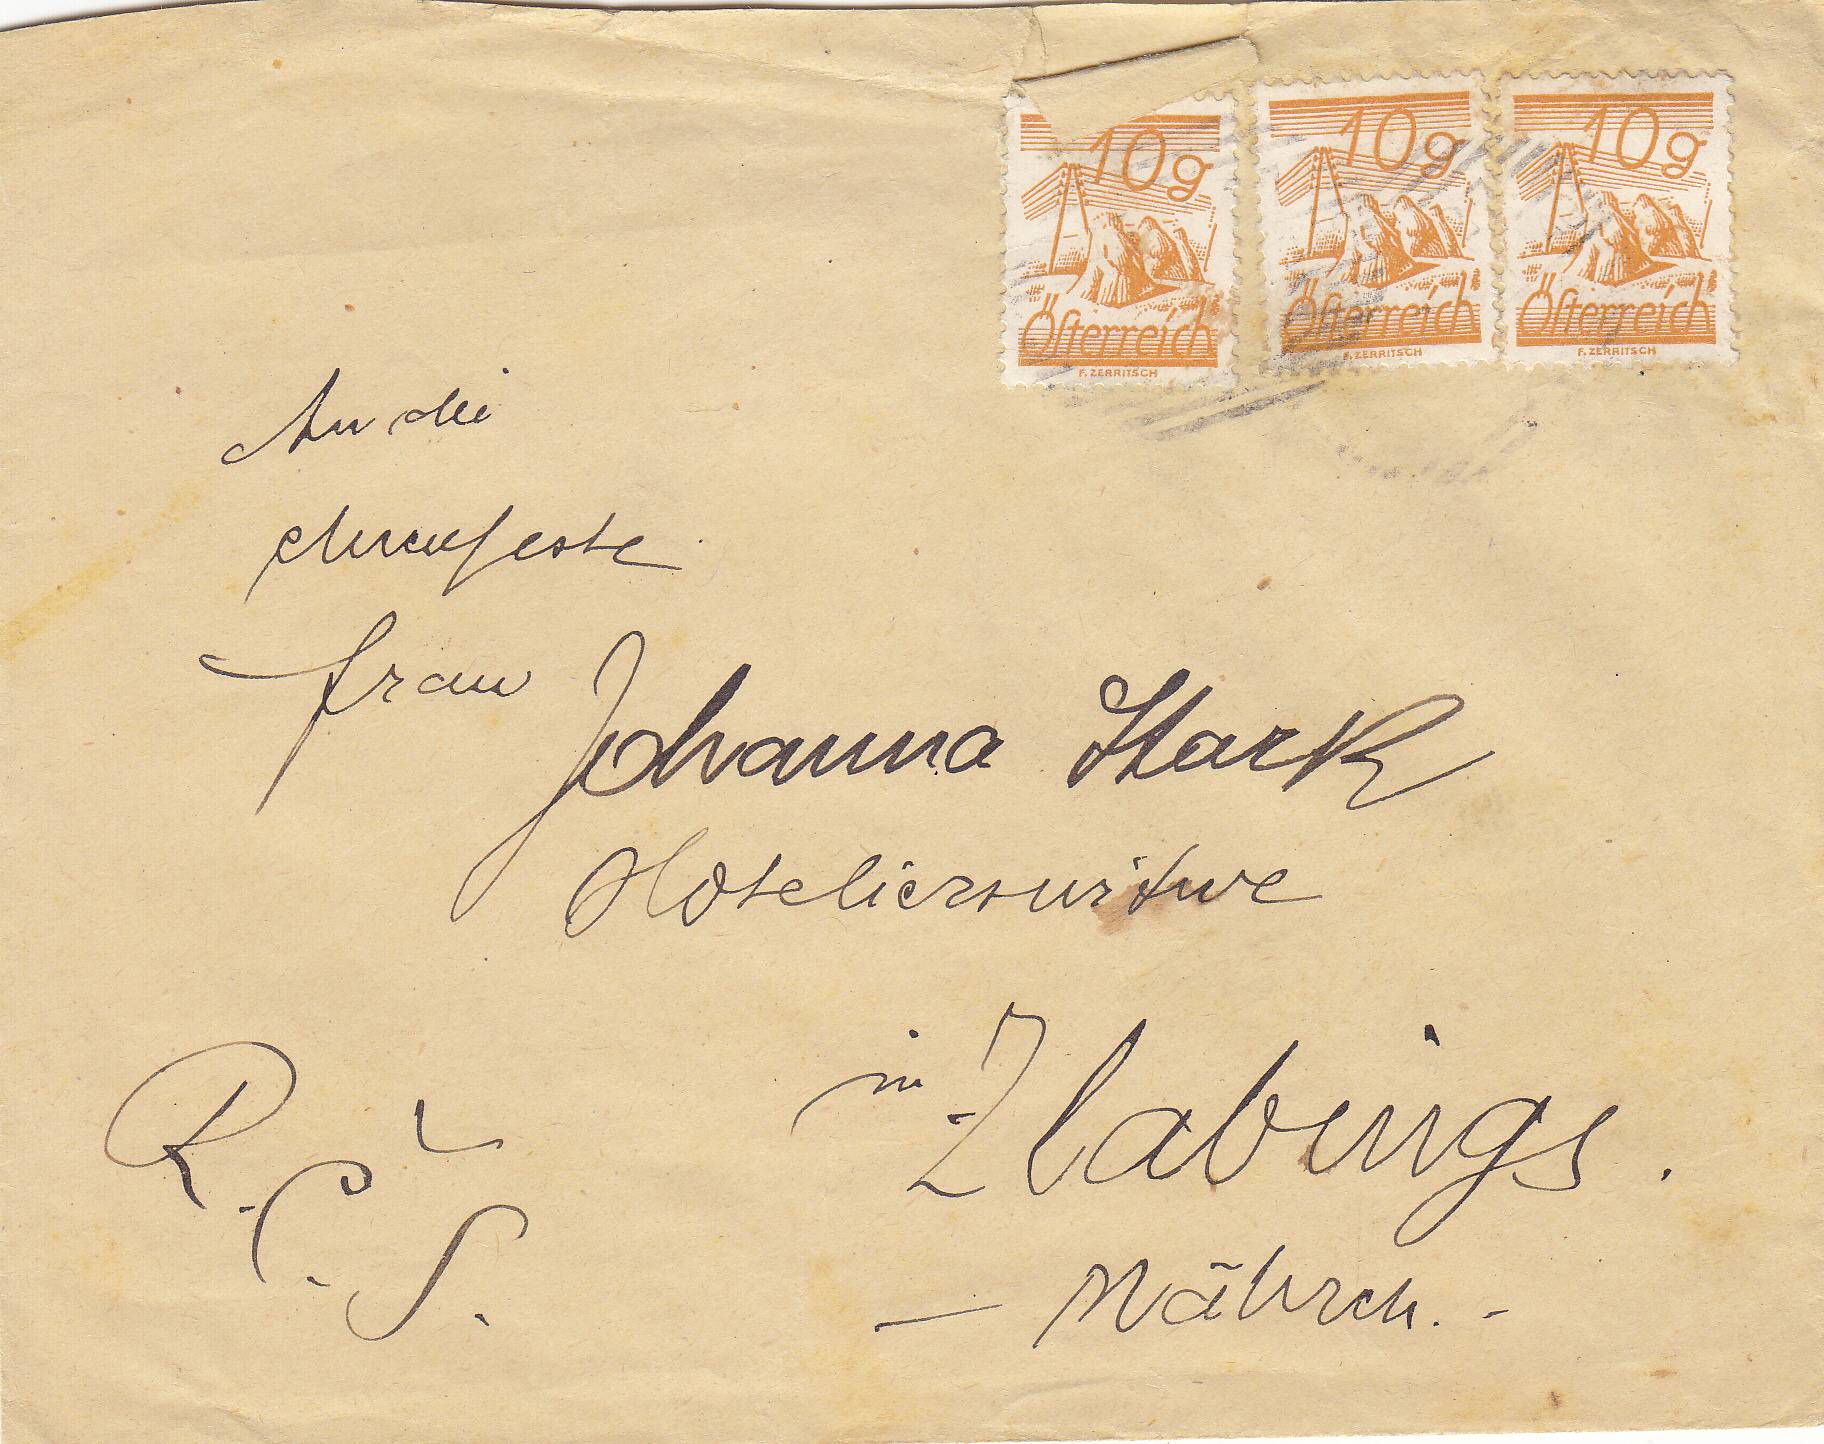 10g
Österreich
F. ZERRITSCH
10g
Österreich
F. ZERRITSCH
10g
Österreich
F. ZERRITSCH
An die
ehrenfeste
Frau Johanna Stark
Hotelierswitwe
in Zlabings.
– Mähren. –
R. Č. S.